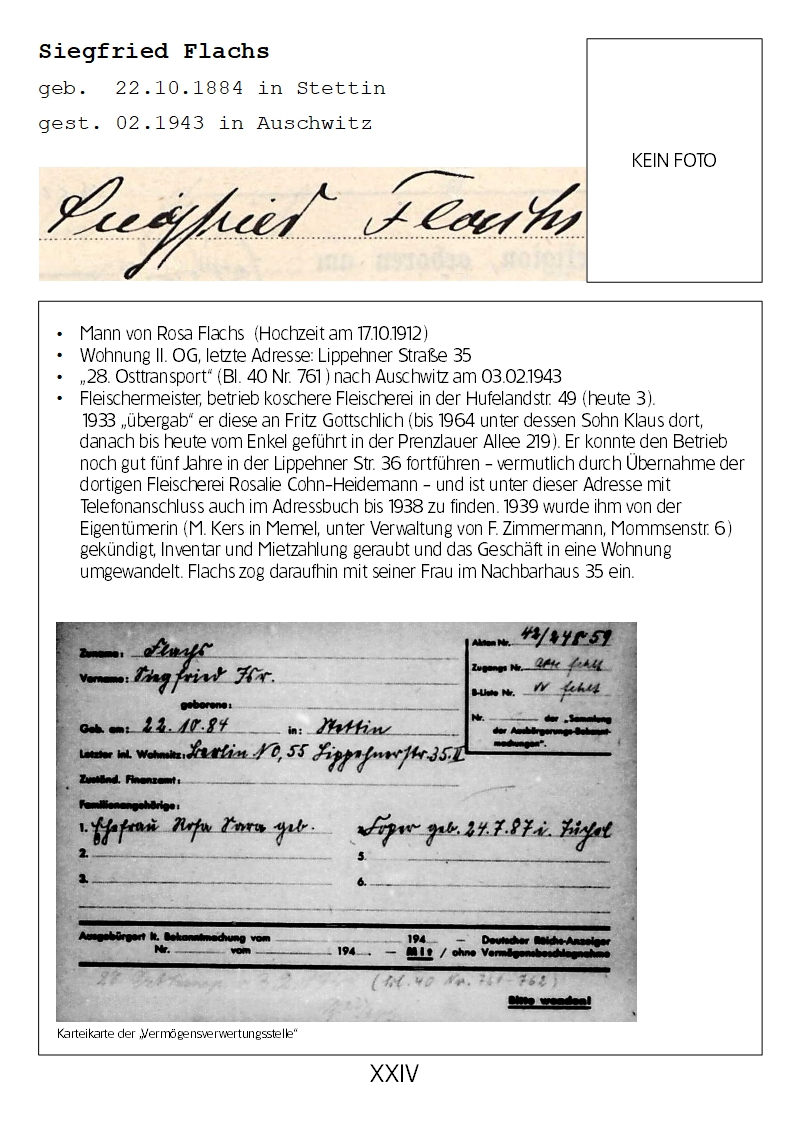 Siegfried Flachs
geb.  22.10.1884 in Stettin
gest. 02.1943 in Auschwitz
KEIN FOTO
Siegfried Flachs
• Mann von Rosa Flachs (Hochzeit am 17.10.1912)
• Wohnung II. OG, letzte Adresse: Lippehner Straße 35
• „28. Osttransport“ (Bl. 40 Nr. 761 ) nach Auschwitz am 03.02.1943
• Fleischermeister, betrieb koschere Fleischerei in der Hufelandstr. 49 (heute 3).
1933 „übergab“ er diese an Fritz Gottschlich (bis 1964 unter dessen Sohn Klaus dort,
danach bis heute vom Enkel geführt in der Prenzlauer Allee 219). Er konnte den Betrieb
noch gut fünf Jahre in der Lippehner Str. 36 fortführen – vermutlich durch Übernahme der
dortigen Fleischerei Rosalie Cohn-Heidemann – und ist unter dieser Adresse mit
Telefonanschluss auch im Adressbuch bis 1938 zu finden. 1939 wurde ihm von der
Eigentümerin (M. Kers in Memel, unter Verwaltung von F. Zimmermann, Mommsenstr. 6)
gekündigt, Inventar und Mietzahlung geraubt und das Geschäft in eine Wohnung
umgewandelt. Flachs zog daraufhin mit seiner Frau im Nachbarhaus 35 ein.
Zuname: Flachs
Vorname: Siegfried Isr.
geborene:
Geb. am: 22.10.84 in: Stettin
Letzter inl. Wohnsitz: Berlin NO, 55 Lippehnerstr. 35.II
Zuständ. Finanzamt:
Familienangehörige:
1. Ehefrau Rosa Sara geb. geb. 24.7.87 i. Tuchel
2. 5.
3. 6.
Akten Nr. 42/
Zugangs Nr. fehlt
B-Liste Nr. fehlt
Nr. der „Sammlung
der Ausbürgerungs-Bekannt-
machungen“.
Ausgebürgert lt. Bekanntmachung vom 194 – Deutscher Reichs-Anzeiger
Nr. vom 194 – Mit / ohne Vermögensbeschlagnahme
(Bl. 40 Nr. 761-762)
Bitte wenden!
Karteikarte der „Vermögensverwertungsstelle“
XXIV